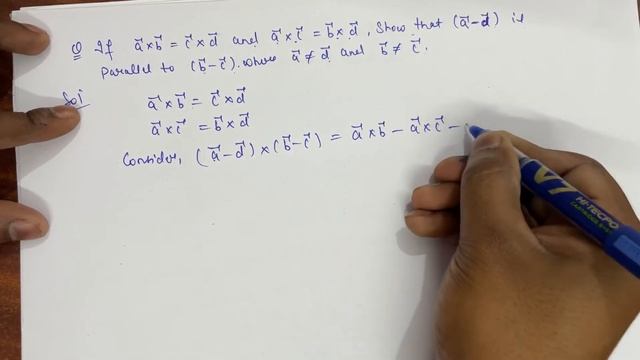 Q If a⃗ × b⃗ = c⃗ × d⃗ and a⃗ × c⃗ = b⃗ × d⃗, Show that (a⃗ - d⃗) is
Parallel to (b⃗ - c⃗). where a⃗ ≠ d⃗ and b⃗ ≠ c⃗.
Sol
a⃗ × b⃗ = c⃗ × d⃗
a⃗ × c⃗ = b⃗ × d⃗
Consider, (a⃗ - d⃗) × (b⃗ - c⃗) = a⃗ × b⃗ - a⃗ × c⃗ -
V7
HI-TECPO